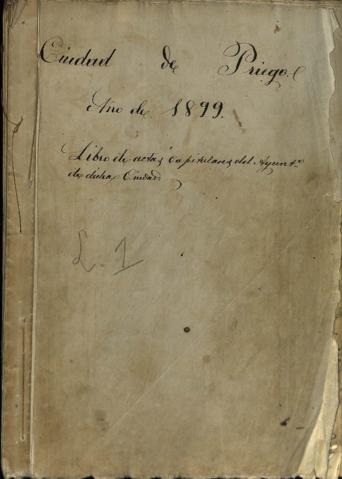 Ciudad de Priego.
Año de 1899.
Libro de actas Capitulares del Ayuntº
de dicha Ciudad
L. 1